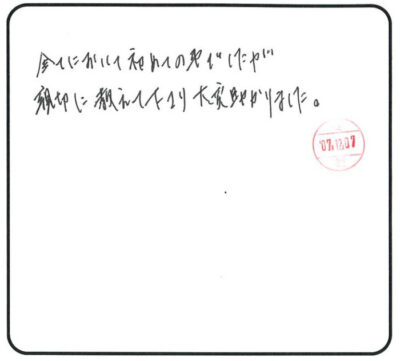 全てにおいて初めての事でしたが
親切に教えて下さり大変助かりました。
07.12.07